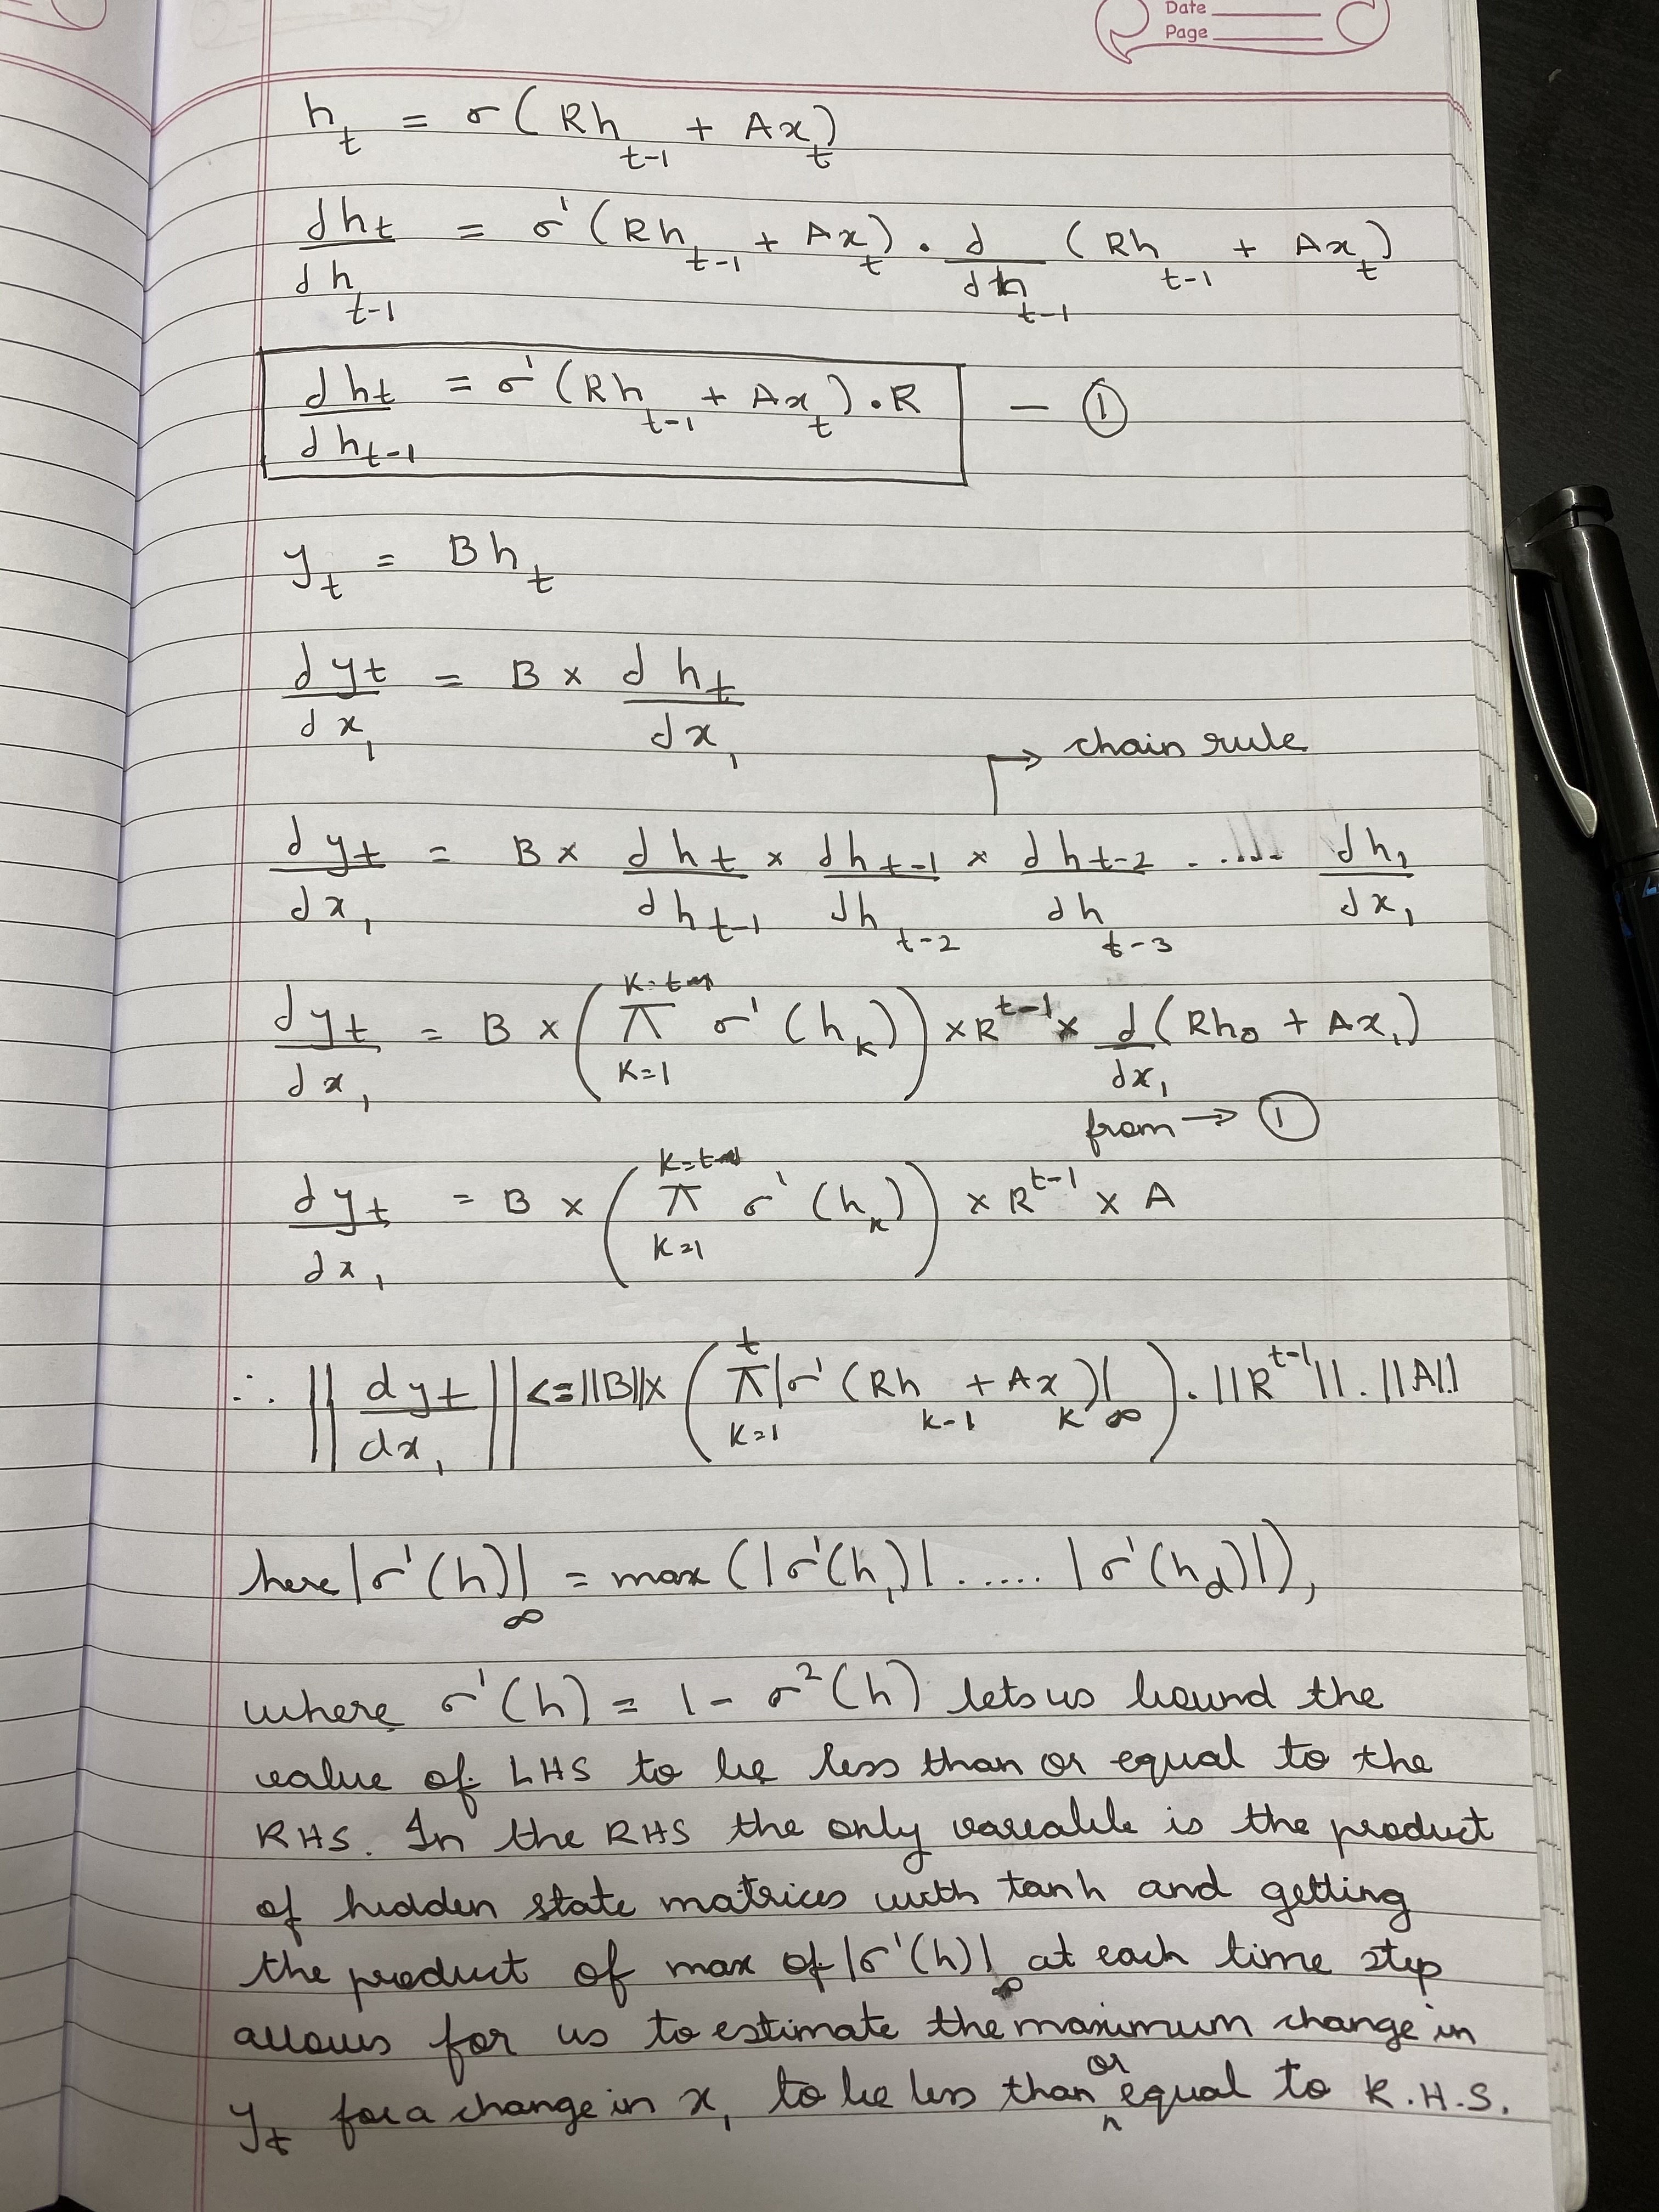 Date
Page
h_t = σ(Rh_{t-1} + Ax_t)
dh_t/dh_{t-1} = σ'(Rh_{t-1} + Ax_t) . d/dh_{t-1} (Rh_{t-1} + Ax_t)
dh_t/dh_{t-1} = σ'(Rh_{t-1} + Ax_t) . R — ①
y_t = Bh_t
dy_t/dx_1 = B × dh_t/dx_1
→ chain rule
dy_t/dx_1 = B × dh_t/dh_{t-1} × dh_{t-1}/dh_{t-2} × dh_{t-2}/dh_{t-3} ...... dh_1/dx_1
dy_t/dx_1 = B × (π_{K=1}^{K=t} σ'(h_K)) × R^{t-1} × d/dx_1 (Rh_0 + Ax_1)
from → ①
dy_t/dx_1 = B × (π_{K=1}^{K=t} σ'(h_K)) × R^{t-1} × A
∴ ||dy_t/dx_1|| <= ||B|| × (π_{K=1}^{t} |σ'(Rh_{K-1} + Ax_K)|_∞) . ||R^{t-1}|| . ||A||
here |σ'(h)|_∞ = max (|σ'(h_1)| ...... |σ'(h_d)|),
where σ'(h) = 1 - σ²(h) lets us bound the
value of LHS to be less than or equal to the
RHS. In the RHS the only variable is the product
of hidden state matrices with tanh and getting
the product of max of |σ'(h)|_∞ at each time step
allows for us to estimate the maximum change in
y_t for a change in x_1 to be less than or equal to R.H.S.